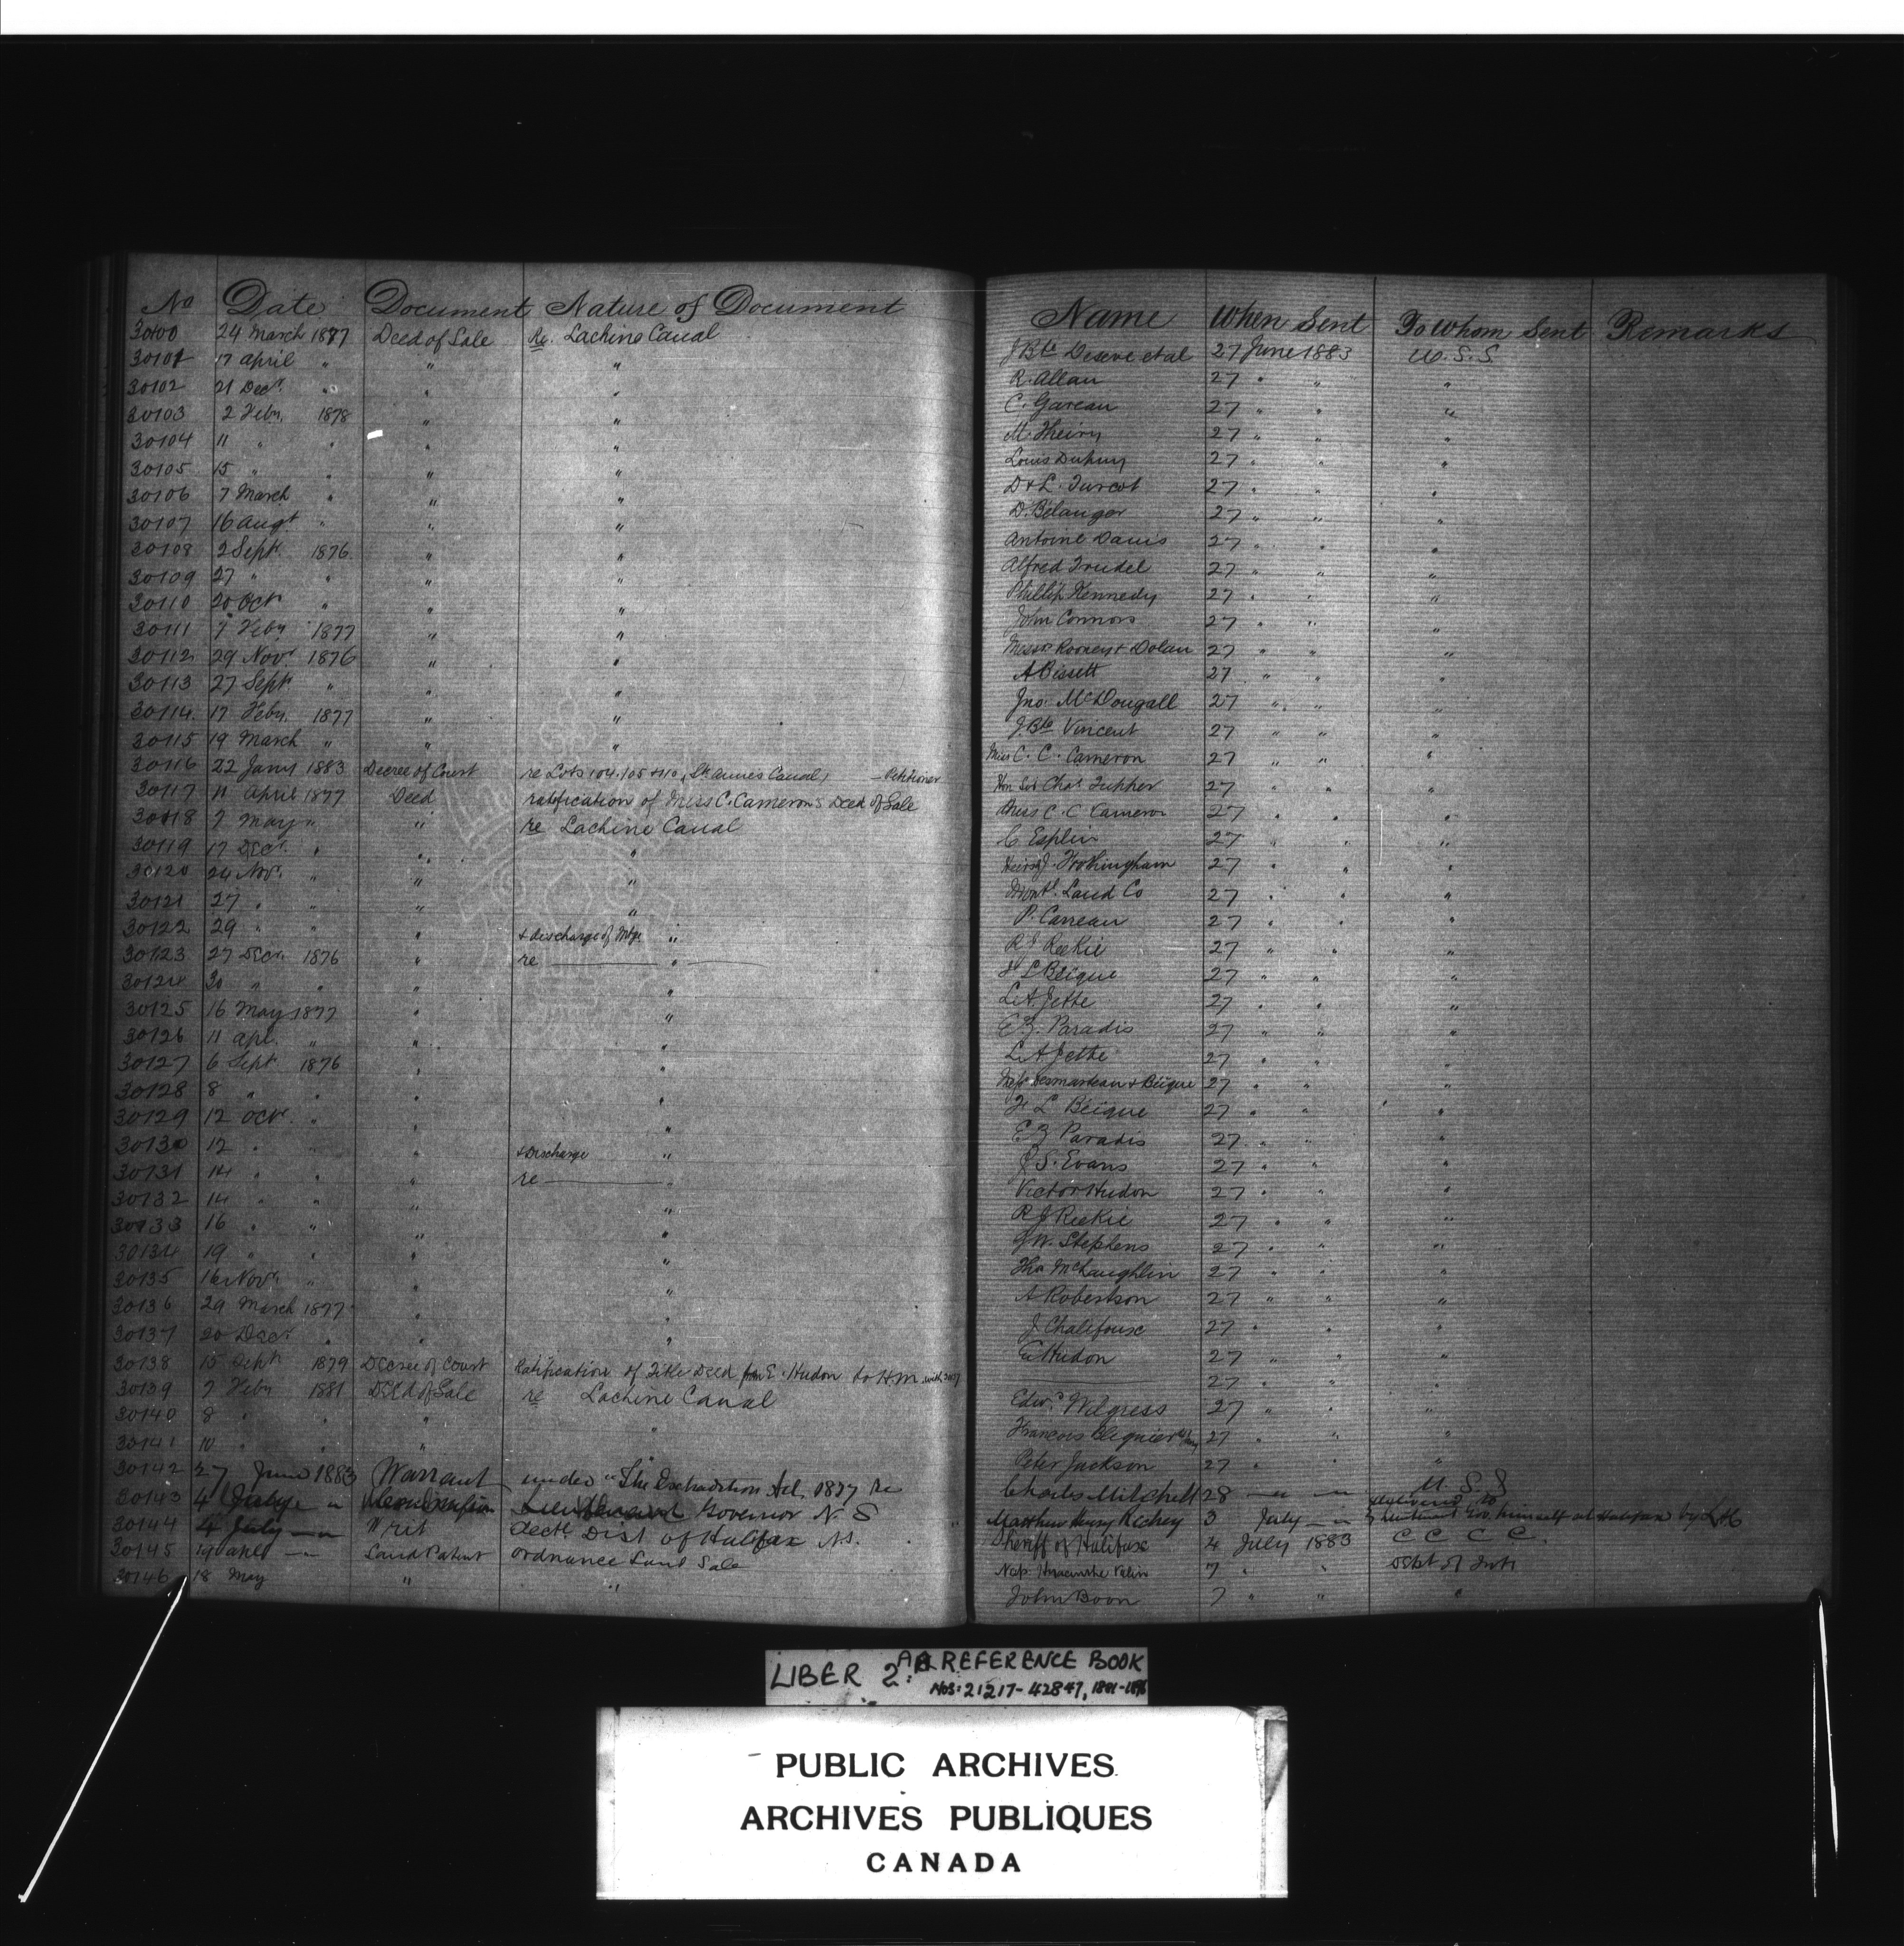 No Date Document Nature of Document Name When Sent To Whom Sent Remarks
30100 24 March 1877 Deed of Sale Re. Lachine Canal J Bte Deseve et al 27 June 1883 U. S. S
30101 17 April " " " R. Allan 27 " " "
30102 21 Decr. " " " C. Gareau 27 " " "
30103 2 Feby. 1878 " " M. Theiry 27 " " "
30104 11 " " " " Louis Dupuy 27 " " "
30105 15 " " " " D & L. Turcot 27 " " "
30106 7 March " " " D. Belanger 27 " " "
30107 16 Augt " " " Antoine Davis 27 " " "
30108 2 Sept. 1876 " " Alfred Trudel 27 " " "
30109 27 " " " " Phillip Kennedy 27 " " "
30110 20 Octr " " " John Connors 27 " " "
30111 7 Feby 1877 " " Messrs Rooney & Dolan 27 " " "
30112 29 Novr 1876 " " A Bissett 27 " " "
30113 27 Sept " " " Jno. McDougall 27 " " "
30114 17 Feby. 1877 " " J. Bte Vincent 27 " " "
30115 19 March " " " Miss C. C. Cameron 27 " " "
30116 22 Jany 1883 Decree of Court re Lots 104.105 & 110, St. Annes Canal, — Petitioner Hon Sir Chas Tupper 27 " " "
30117 11 April 1877 Deed ratification of Miss C. Camerons Deed of Sale Miss C. C Cameron 27 " " "
30118 7 May " " re Lachine Canal C Esplin 27 " " "
30119 17 Decr. " " " Heirs J. Frothingham 27 " " "
30120 24 Nov. " " " Montl. Land Co 27 " " "
30121 27 " " " " P. Carreau 27 " " "
30122 29 " " " & discharge of Mtge " R J Reekie 27 " " "
30123 27 Decr. 1876 " re — " — F L Béique 27 " " "
30124 30 " " " " L. A. Jette 27 " " "
30125 16 May 1877 " " E Z. Paradis 27 " " "
30126 11 Apl. " " " L. A Jette 27 " " "
30127 6 Sept 1876 " " Desmarteau & Béique 27 " " "
30128 8 " " " " F L Béique 27 " " "
30129 12 Octr. " " " E Z Paradis 27 " " "
30130 12 " " " & Discharge " J S. Evans 27 " " "
30131 14 " " " re — " Victor Hudon 27 " " "
30132 14 " " " " R J Reekie 27 " " "
30133 16 " " " " J W. Stephens 27 " " "
30134 19 " " " " Thos McLaughlin 27 " " "
30135 16 Novr. " " " A Robertson 27 " " "
30136 29 March 1877 " " J Chalifoux 27 " " "
30137 20 Decr " " " E Hudon 27 " " "
30138 15 Sept 1879 Decree of Court Ratification of Title Deed from E. Hudon to H.M. with — 27 " " "
30139 7 Feby 1881 Deed of Sale re Lachine Canal Edwd. Wilgress 27 " " "
30140 8 " " " " Francois 27 " " "
30141 10 " " " " Peter Jackson 27 " " "
30142 27 June 1883 Warrant under "The Extradition Act, 1877" Re Charles Mitchell 28 — " — " U. S. S
30143 4 July — " Commission Lieutenant Governor N. S Matthew Henry Richey 3 July — " delivered to Lieutenant Gov. himself at Halifax by
30144 4 July — " Writ Elect. Dist of Halifax N.S. Sheriff of Halifax 4 July 1883 C C C C
30145 14 Apl — " Land Patent Ordnance Land Sale Valin 7 " " Dept of Intr
30146 18 May " " John Boon 7 " " "
LIBER 2: REFERENCE BOOK
NOS: 21217-42847, 1881-1896
PUBLIC ARCHIVES
ARCHIVES PUBLIQUES
CANADA